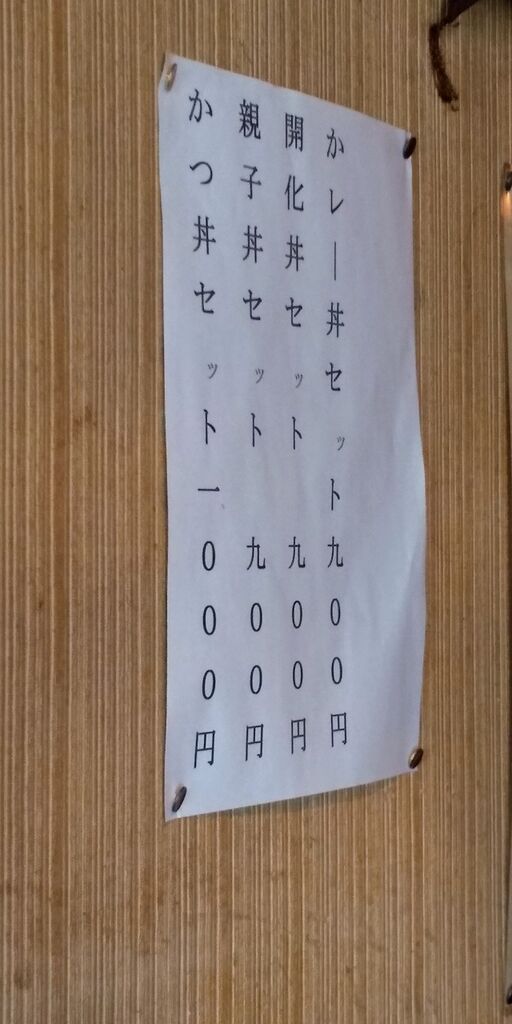 カレー丼セット九00円
開化丼セット九00円
親子丼セット九00円
かつ丼セット一000円